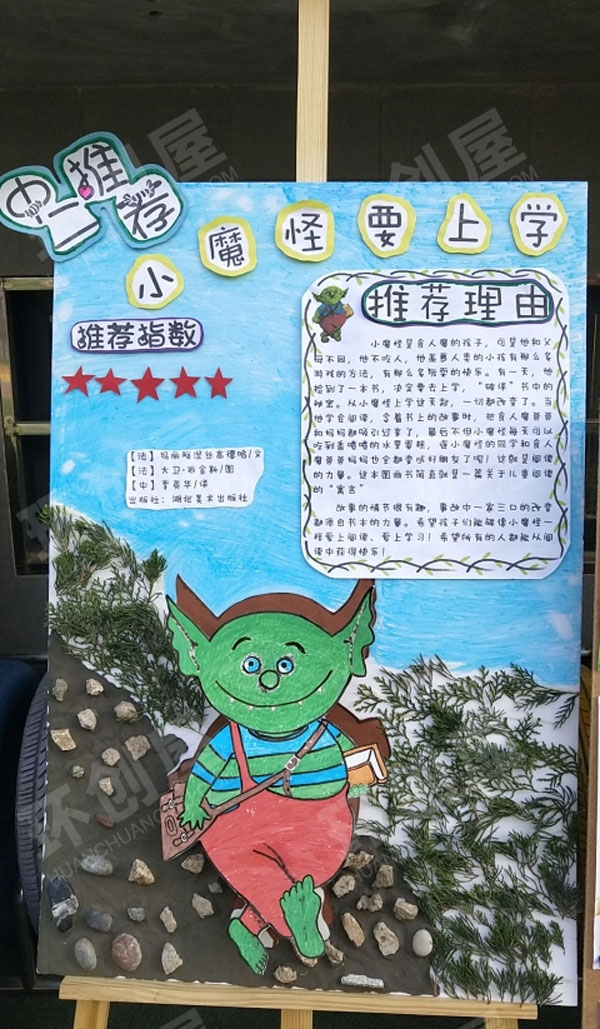 中二推荐
小魔怪要上学
推荐指数
【法】玛丽阿涅丝高德哈/文
【法】大卫·派金斯/图
【中】李英华/译
出版社：湖北美术出版社
推荐理由
小魔怪是食人魔的孩子，可是他和父
母不同，他不吃人，他羡慕人类的小孩有那么多
游戏的方法，有那么多玩耍的快乐。有一天，他
捡到了一本书，决定要去上学，“破译”书中的
秘密。从小魔怪上学这天起，一切都改变了。当
他学会阅读，念着书上的故事时，把食人魔爸爸
和妈妈都吸引过来了，最后不但小魔怪每天可以
吃到香喷喷的水果蛋糕，连小魔怪的同学和食人
魔爸爸妈妈也全都变成好朋友了呢！这就是阅读
的力量。这本图画书简直就是一篇关于儿童阅读
的“寓言”
故事的情节很有趣，事故中一家三口的改变
都源自书本的力量。希望孩子们能够像小魔怪一
样爱上阅读、爱上学习！希望所有的人都能从阅
读中获得快乐！